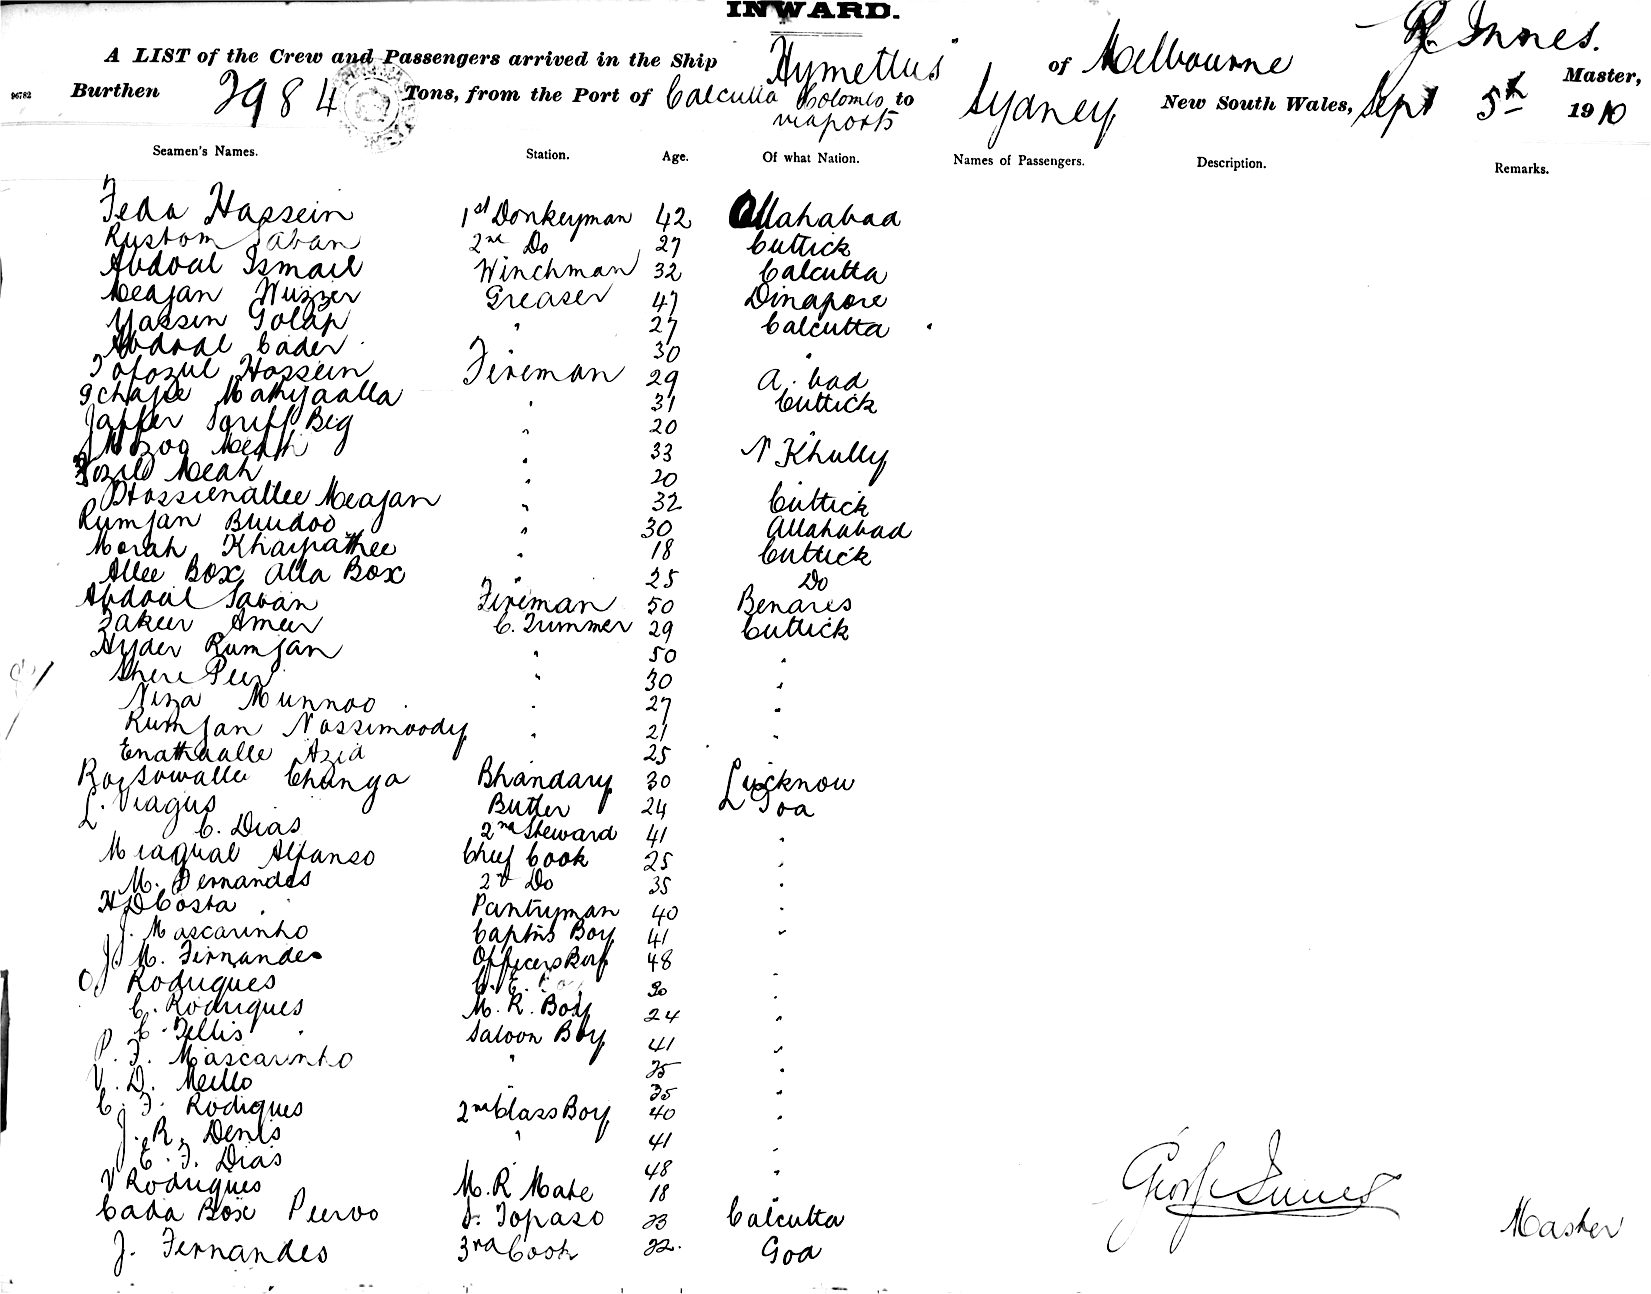 INWARD.
A LIST of the Crew and Passengers arrived in the Ship Hymettus of Melbourne G. Innes. Master,
Burthen 2984 Tons, from the Port of Calcutta Colombo to Sydney New South Wales, Sept 5th 1910
via ports
96782
Seamen's Names. Station. Age. Of what Nation. Names of Passengers. Description. Remarks.
Feda Hassein 1st Donkeyman 42 Allahabad
Rustom Saban 2nd Do 27 Cuttick
Abdoul Ismail Winchman 32 Calcutta
Meajan Wuzzer Greaser 47 Dinapore
Yassin Golap " 27 Calcutta
Abdoul Cader 30 "
Tofozul Hossein Fireman 29 A. bad
Mathyaalla " 31 Cuttick
Jaffer Sariff Beg " 20 "
Meah " 33 N Khully
Fozil Meah " 20
Hossienallee Meajan " 32 Cuttick
Rumjan Buudoo " 30 Allahabad
Morah Khaipathee " 18 Cuttick
Allee Box Alla Box " 25 Do
Abdoul Saban Fireman 50 Benares
Fakur Amur C. Trimmer 29 Cuttick
Hyder Rumjan " 50 "
Shere Peer " 30 "
Niza Munnoo " 27 "
Rumjan Nassimoody " 21 "
Enathaalle Azid 25
Changa Bhandary 30 Lucknow
L. Viagus Butler 24 Goa
L C. Dias 2nd Steward 41 "
Miaqual Alfanso Chief Cook 25 "
M. Fernandes 2nd Do 35 "
H DCosta Pantryman 40 "
J. Mascarinho Captns Boy 41 "
J. M. Fernandes Officers Boy 48
O Rodrigues C. E. 30 "
C. Rodrigues M. R. Boy 24 "
P C. Tellis Saloon Boy 41 "
P. F. Mascarinho " 25 "
V. D. Mello 35 "
C. F. Rodigues 2nd Class Boy 40 "
J. R. Denis " 41 "
E. F. Dias 48 "
V Rodrigues M. R Mate 18 "
Cada Box Peeroo Topaso 23 Calcutta
J. Fernandes 3rd Cook 22. Goa
Geo Innes
Master